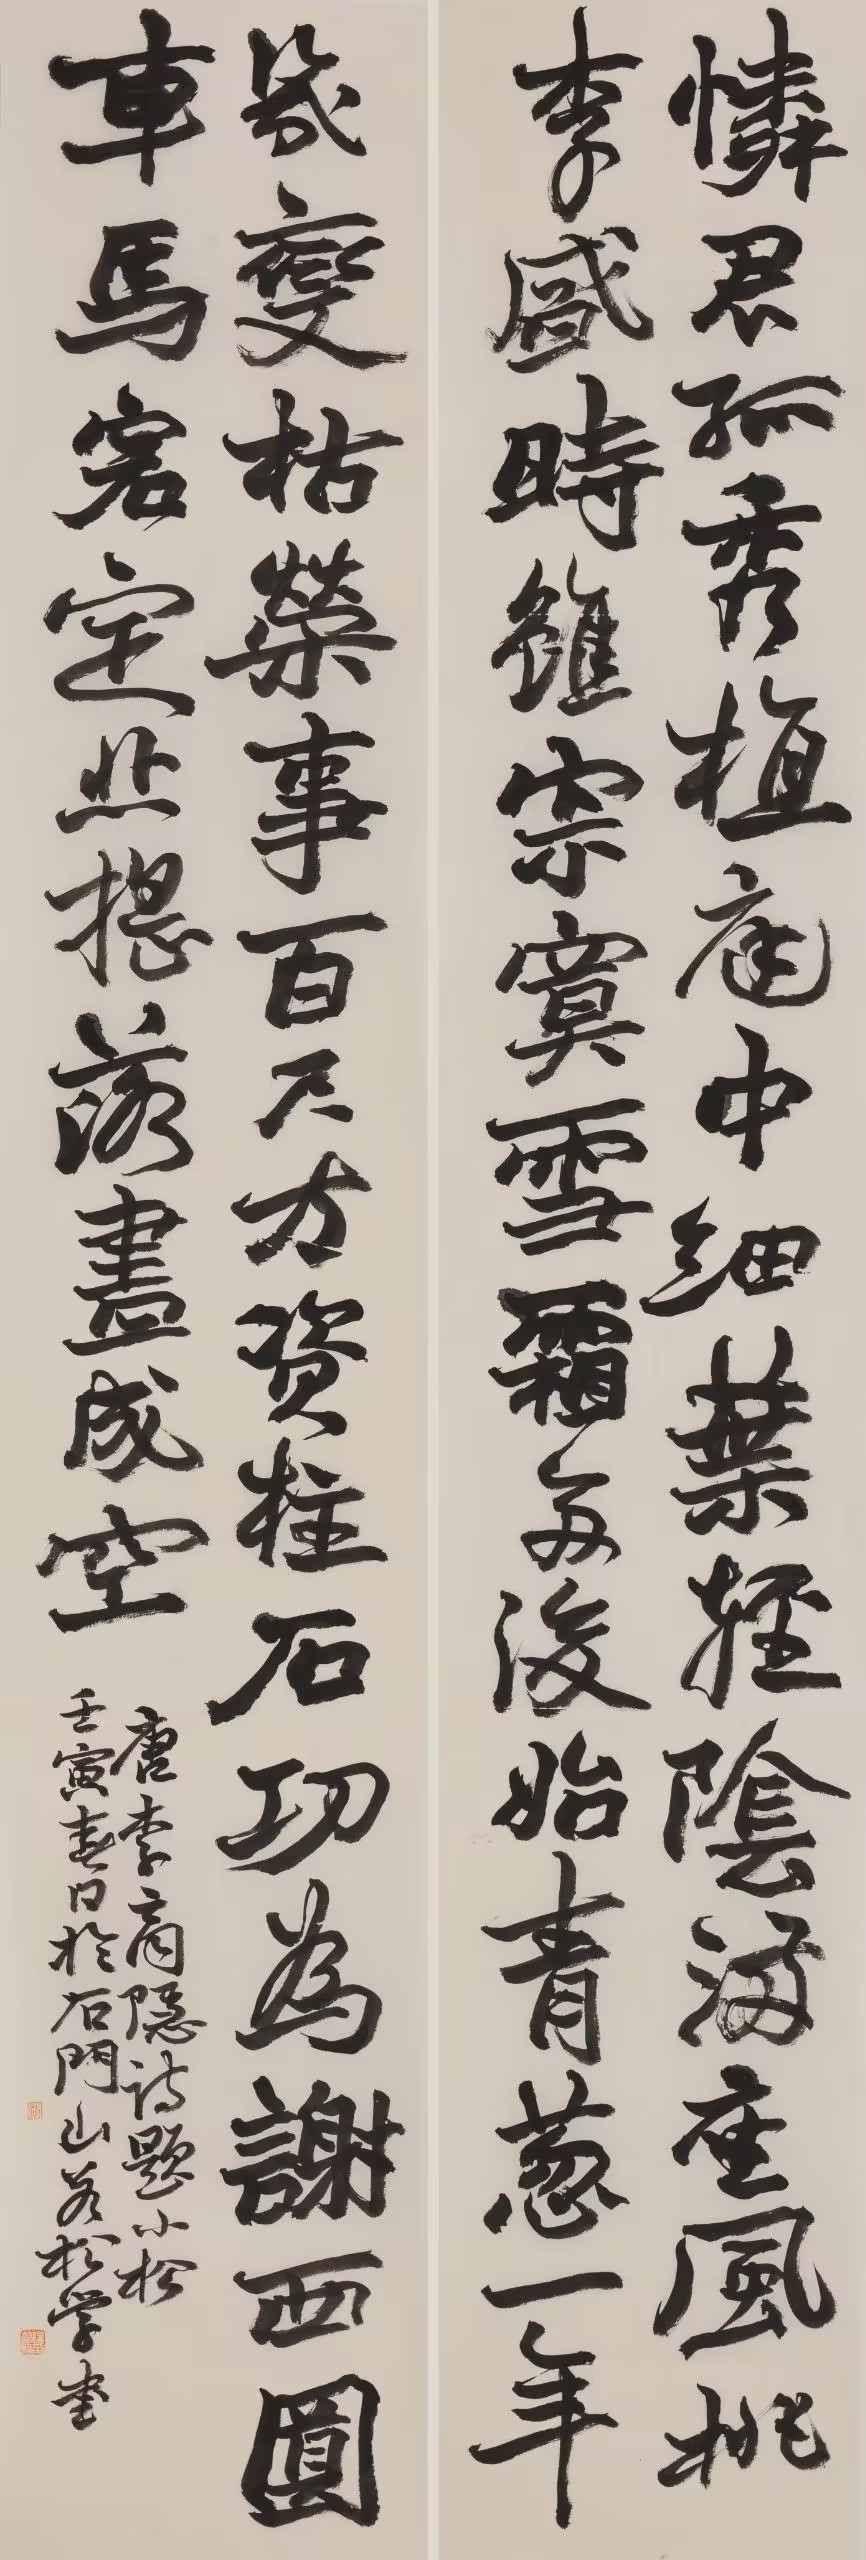 憐君孤秀植庭中細葉輕陰滿座風桃
李盛時雖寂寞雪霜多後始青蔥一年
幾變枯榮事百尺方資柱石功為謝西園
車馬客定悲搖落盡成空
唐李商隱詩題小松
壬寅春日於石門山若松学書